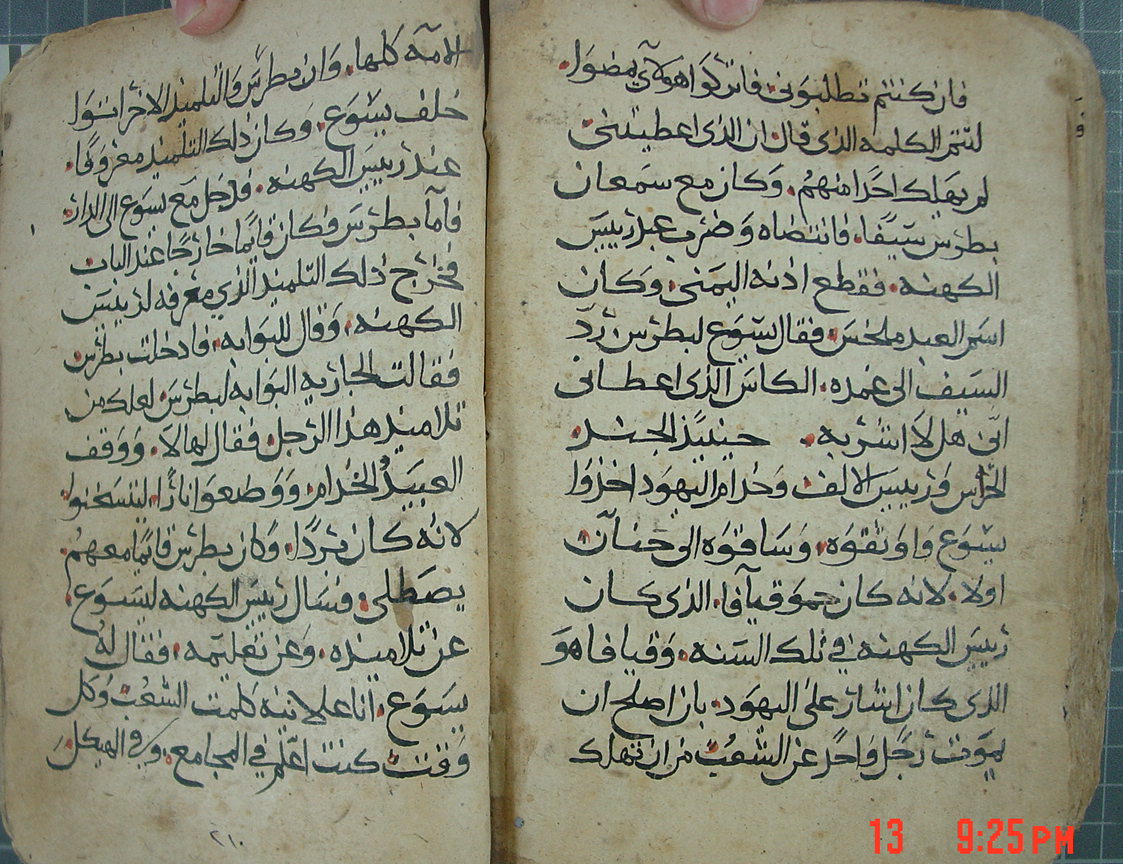 فان كنتم تطلبوني فاتركوا هولاي يمضوا.
لتتم الكلمه الذي قال ان الذي اعطيتني
لم يهلك احدا منهم. وكان مع سمعان
بطرس سيفا. فانتضاه وضرب عبد رييس
الكهنه. فقطع اذنه اليمنى. وكان
اسم العبد ملخس. فقال يسوع لبطرس رد
السيف الى غمده. الكاس الذي اعطاني
ابي هل لا اشربه. حينيذ الجند.
الحراس ورييس الالف وخدام اليهود اخذوا
يسوع واوثقوه. وساقوه الى حنان
اولا. لانه كان حمو قيافا. الذي كان
رييس الكهنه في تلك السنه. وقيافا هو
الذي كان اشار على اليهود. بان اصلح ان
يموت رجل واحد عن الشعب من ان تهلك
الامه كلها. وان بطرس والتلميذ الاخر اتبعوا
خلف يسوع. وكان ذلك التلميذ معروفا.
عند رييس الكهنه. فدخل مع يسوع الى الدار.
فاما بطرس فكان قايما خارجا عند الباب
فخرج ذلك التلميذ الذي معرفه لرييس
الكهنه. وقال للبوابه. فادخلت بطرس
فقالت الجاريه البوابه لبطرس لعلك من
تلاميذ هذا الرجل. فقال لها لا. ووقف
العبيد والخدام. ووضعوا نارا. ليتسخنوا
لانه كان بردا. وكان بطرس قايما معهم.
يصطلي. فسال رييس الكهنه ليسوع.
عن تلاميذه. وعن تعليمه. فقال له
يسوع. انا علانيه كلمت الشعب وكل
وقت كنت اعلم في المجامع. وفي الهيكل
٢١٠
13 9:25PM